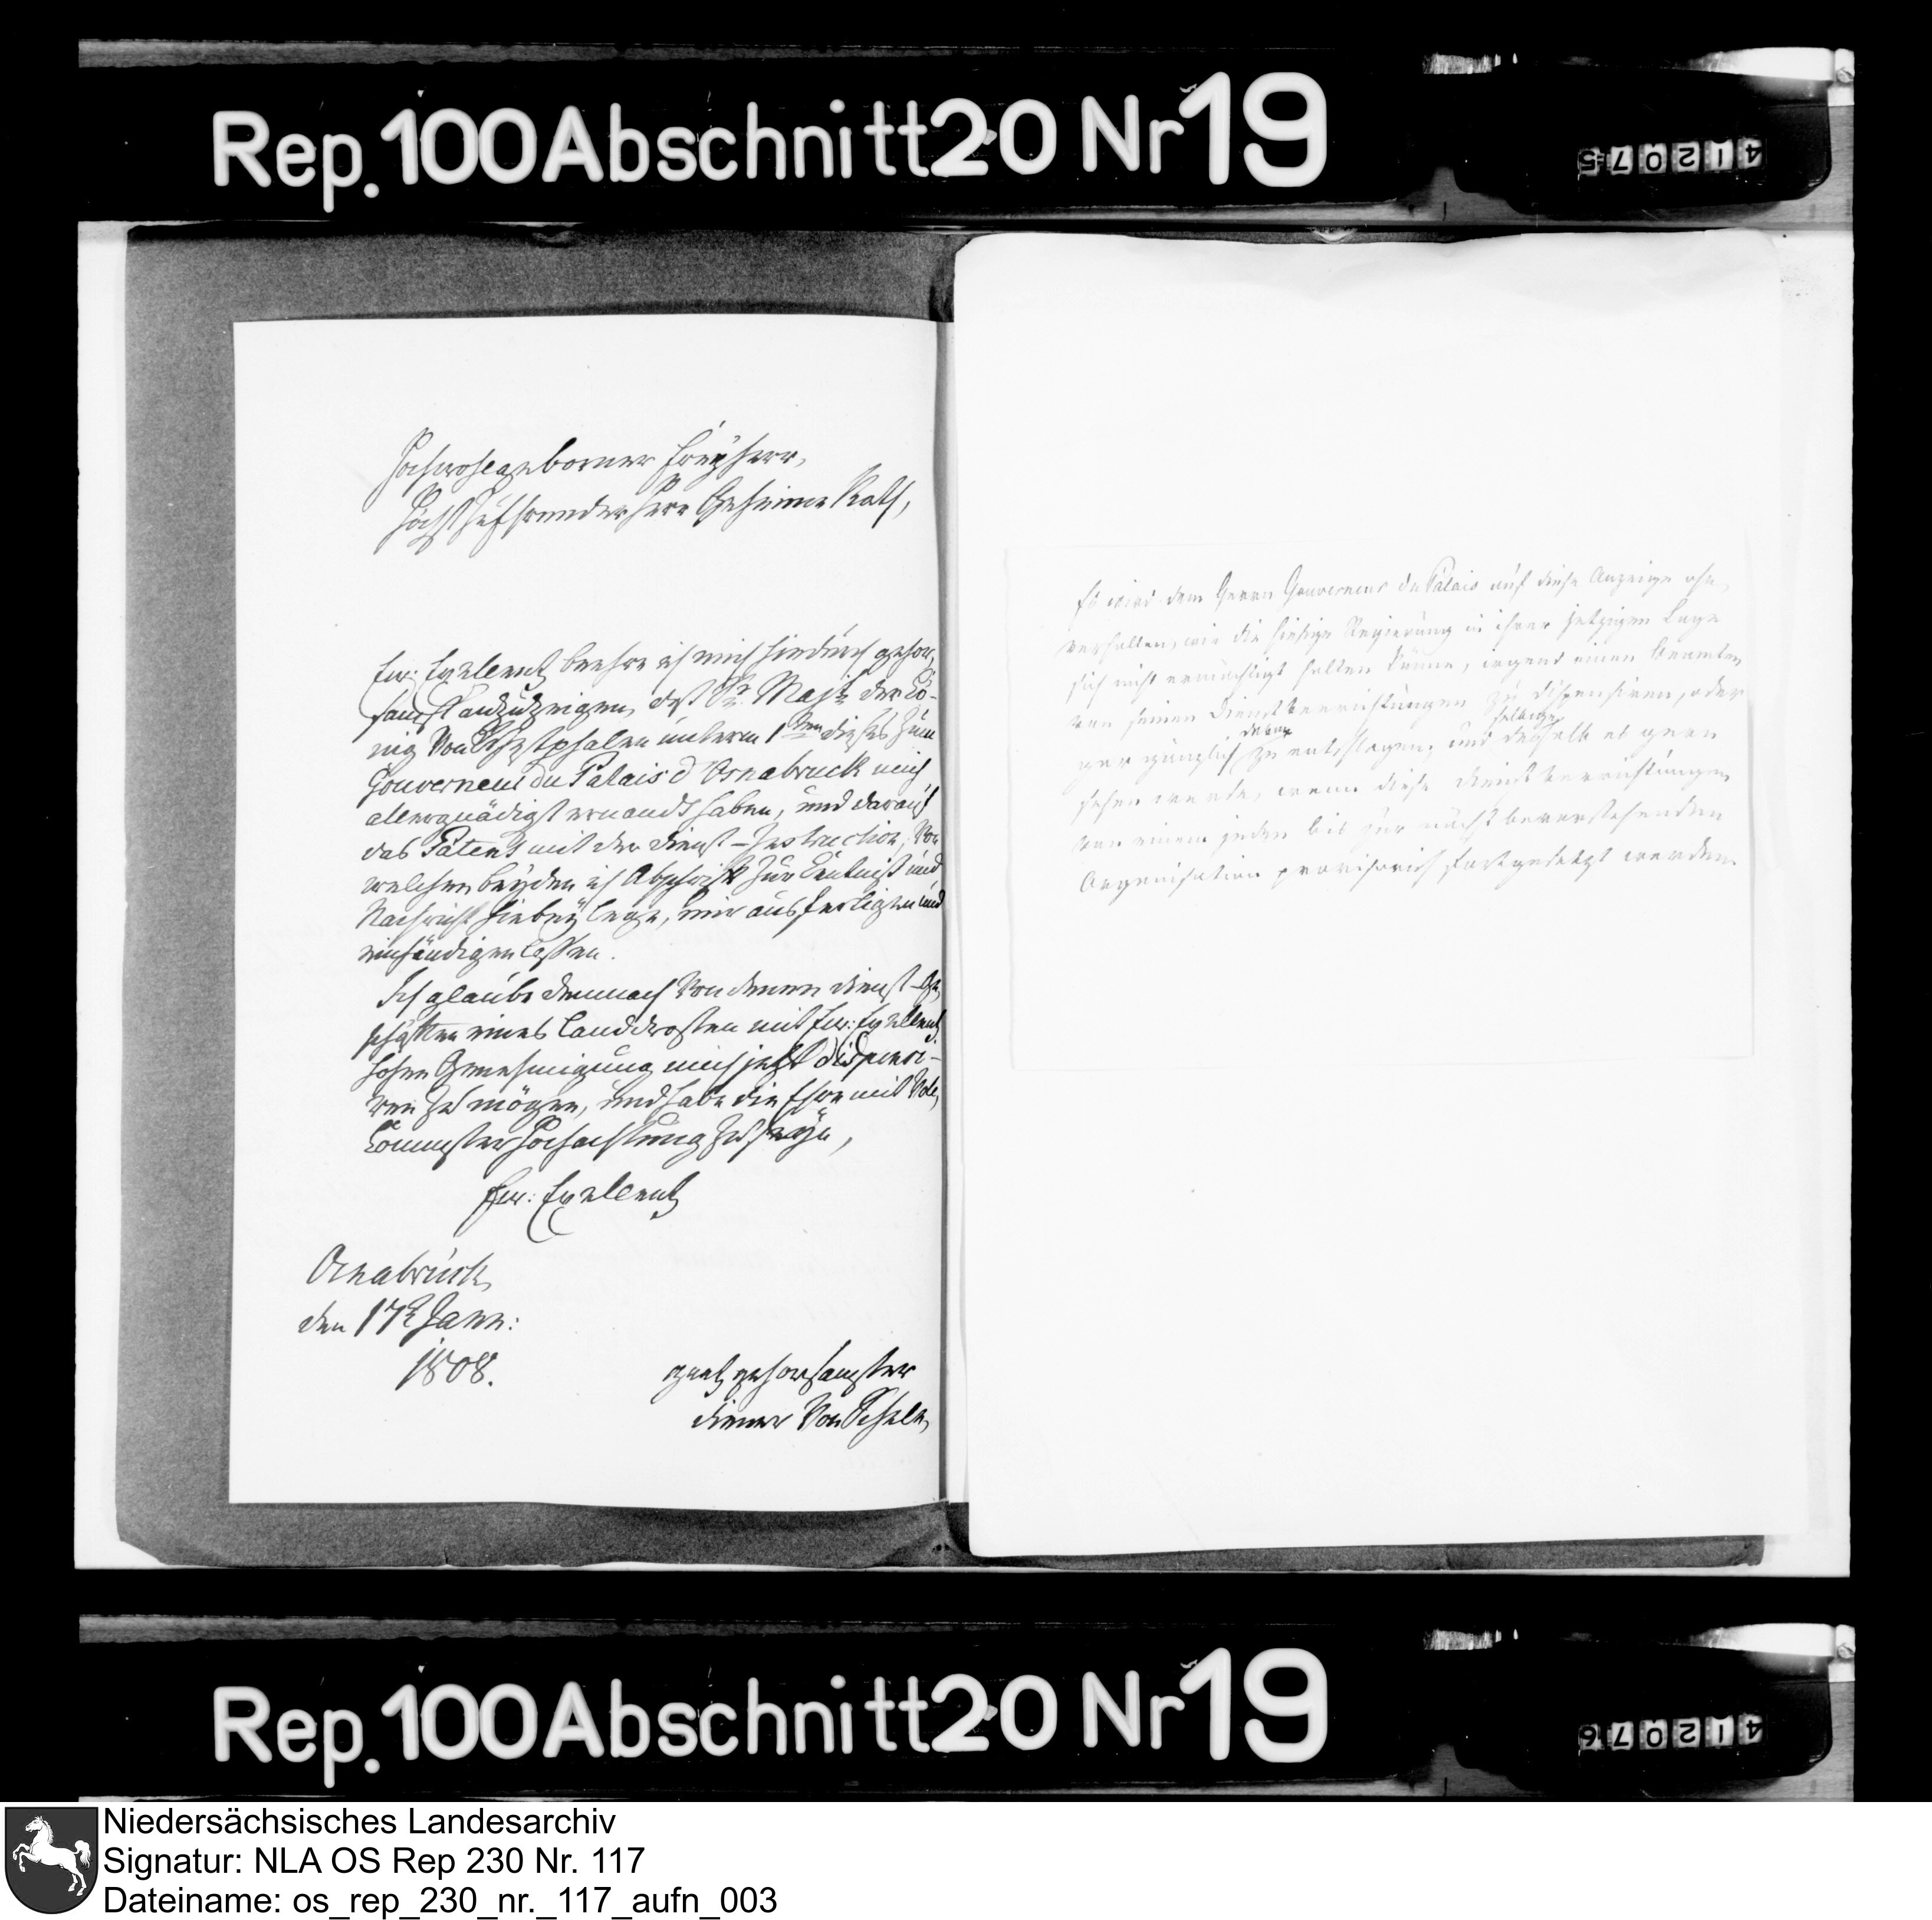 Rep. 100 Abschnitt 20 Nr 19
412075
Hochwohlgeborner Freyherr,
Höchstzuehrender Herr Geheime Rath,
Ew: Exellentz beehre ich mich hiedurch gehor-
samst anzuzeigen, daß Sr. Majt. der Kö-
nig von Westphalen unterm 1ten dieses zum
Gouverneur du Palais d'Osnabruck mich
allergnädigst ernandt haben, und darauf
das Patent mit der Dienst-Instruction, von
welchen beyden ich Abschrift zur Kentniß und
Nachricht hiebey lege, mir ausfertigen und
einhändigen lassen.
Ich glaube demnach von denen Dienst-Ge-
schäften eines Landdrosten mit Ew: Exellentz
hohen Genehmigung mich jetzt dispensi-
ren zu mögen, und habe die Ehre mit voll-
kommster Hochachtung zu seyn,
Ew: Exellentz
Osnabrück
den 17t Janr:
1808.
gantz gehorsamster
Diener von Schele
Es wird dem Herrn Gouverneur du Palais auf diese Anzeige ohn-
verhalten, wie die hiesige Regierung in ihrer jetzigen Lage
sich nicht ermächtigt halten könne, irgend einen Beamten
von seinen Dienstverrichtungen zu dispensiren, oder
gar gänzlich deren zu entschlagen, und selbige deshalb es gern
sehen werde, wenn diese Dienstverrichtungen
von einem jeden bis zur nächst bevorstehenden
Organisation provisorisch fortgesetzt werden.
Rep. 100 Abschnitt 20 Nr 19
412076
Niedersächsisches Landesarchiv
Signatur: NLA OS Rep 230 Nr. 117
Dateiname: os_rep_230_nr._117_aufn_003